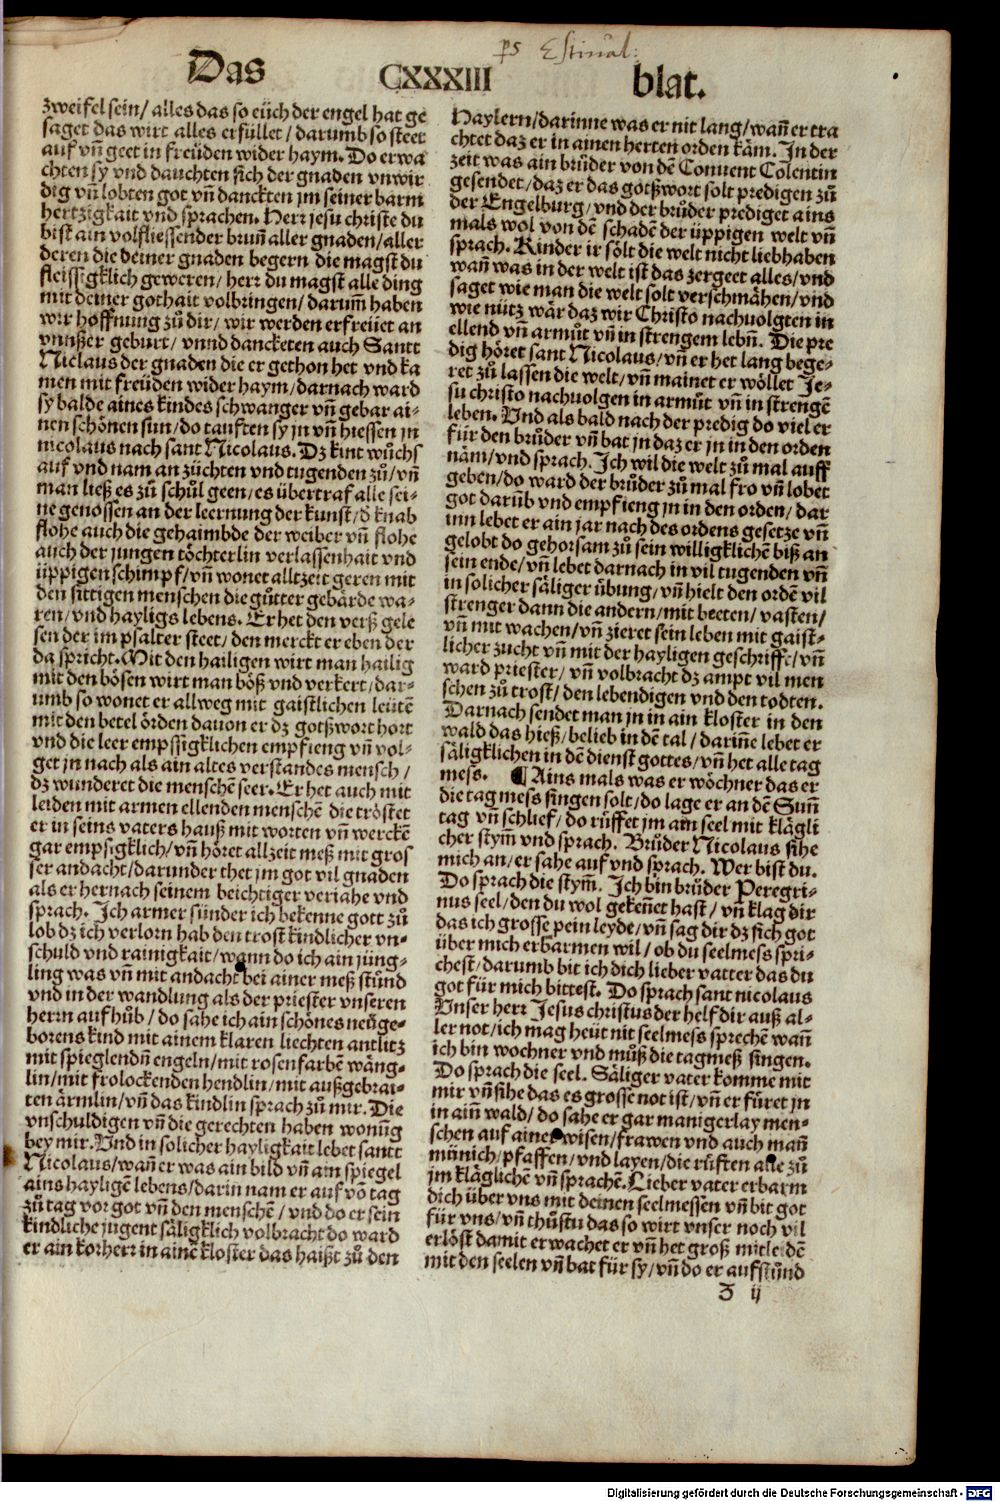 ps Estiual:
Das CXXXIII blat.
zweifel sein/ alles das so eüch der engel hat ge
saget das wirt alles erfüllet/ darumb so steet
auf vn̄ geet in freüden wider haym. Do erwa
chten sy vnd dauchten sich der gnaden vnwir
dig vn̄ lobten got vn̄ danckten jm seiner barm
hertzigkait vnd sprachen. Herr jesu christe du
bist ain volfliessender brun̄ aller gnaden/ aller
deren die deiner gnaden begern die magst du
fleissigklich geweren/ herr du magst alle ding
mit deiner gothait volbringen/ darum̄ haben
wir hoffnung zů dir/ wir werden erfreüet an
vnnßer geburt/ vnnd dancketen auch Santt
Niclaus der gnaden die er gethon het vnd ka
men mit freüden wider haym/ darnach ward
sy balde aines kindes schwanger vn̄ gebar ai-
nen schönen sun/ do tauften sy jn vn̄ hiessen jn
nicolaus nach sant Nicolaus. Dz kint wůchs
auf vnd nam an züchten vnd tugenden zů/ vn̄
man ließ es zů schůl geen/ es übertraf alle sei-
ne genossen an der leernung der kunst/ d̄ knab
flohe auch die gehaimbde der weiber vn̄ flohe
auch der jungen töchterlin verlassenhait vnd
üppigen schimpf/ vn̄ wonet alltzeit geren mit
den sittigen menschen die gůtter gebärde wa-
ren/ vnd hayligs lebens. Er het den verß gele
sen der im psalter steet/ den merckt er eben der
da spricht. Mit den hailigen wirt man hailig
mit den bösen wirt man böß vnd verkert/ dar-
umb so wonet er allweg mit gaistlichen leütē
mit den betel örden dauon er dz gotßwort hort
vnd die leer empssigklichen empfieng vn̄ vol-
get jn nach als ain altes verstandes mensch/
dz wunderet die menschē seer. Er het auch mit
leiden mit armen ellenden menschē die tröstet
er in seins vaters hauß mit worten vn̄ werckē
gar empsigklich/ vn̄ höret allzeit meß mit gros
ser andacht/ darunder thet jm got vil gnaden
als er hernach seinem beichtiger veriahe vnd
sprach. Ich armer sünder ich bekenne gott zů
lob dz ich verlorn hab den trost kindlicher vn-
schuld vnd rainigkait/ wann do ich ain jüng-
ling was vn̄ mit andacht bei ainer meß stůnd
vnd in der wandlung als der priester vnseren
herrn auf hůb/ do sahe ich ain schönes neüge-
borens kind mit ainem klaren liechten antlitz
mit spieglendn̄ engeln/ mit rosenfarbē wäng-
lin/ mit frolockenden hendlin/ mit außgebrai-
ten ärmlin/ vn̄ das kindlin sprach zů mir. Die
vnschuldigen vn̄ die gerechten haben wonūg
bey mir. Vnd in solicher hayligkait lebet santt
Nicolaus/ wan̄ er was ain bild vn̄ ain spiegel
ains hayligē lebens/ darin nam er auf vō tag
zů tag vor got vn̄ den menschē/ vnd do er sein
kindliche jugent säligklich volbracht do ward
er ain korherr in ainē kloster das haißt zů den
Haylern/ darinne was er nit lang/ wan̄ er tra
chtet daz er in ainen herten orden käm. In der
zeit was ain brůder von dē Conuent Colentin
gesendet/ daz er das gotßwort solt predigen zů
der Engelburg/ vnd der brůder prediget ains
mals wol von dē schadē der üppigen welt vn̄
sprach. Kinder ir sölt die welt nicht liebhaben
wan̄ was in der welt ist das zergeet alles/ vnd
saget wie man die welt solt verschmähen/ vnd
wie nütz wär daz wir Christo nachuolgten in
ellend vn̄ armůt vn̄ in strengem lebn̄. Die pre
dig höret sant Nicolaus/ vn̄ er het lang bege-
ret zů lassen die welt/ vn̄ mainet er wöllet Je-
su christo nachuolgen in armůt vn̄ in strengē
leben. Vnd als bald nach der predig do viel er
für den brůder vn̄ bat jn daz er jn in den orden
näm/ vnd sprach. Ich wil die welt zů mal auff
geben/ do ward der brůder zů mal fro vn̄ lobet
got darūb vnd empfieng jn in den orden/ dar
inn lebet er ain jar nach des ordens gesetze vn̄
gelobt do gehorsam zů sein willigklichē biß an
sein ende/ vn̄ lebet darnach in vil tugenden vn̄
in solicher säliger übung/ vn̄ hielt den ordē vil
strenger dann die andern/ mit beeten/ vasten/
vn̄ mit wachen/ vn̄ zieret sein leben mit gaist-
licher zucht vn̄ mit der hayligen geschriffe/ vn̄
ward priester/ vn̄ volbracht dz ampt vil men
schen zů trost/ den lebendigen vnd den todten.
Darnach sendet man jn in ain kloster in den
wald das hieß/ belieb in dē tal/ darin̄e lebet er
säligklichen in dē dienst gottes/ vn̄ het alle tag
mess. ¶ Ains mals was er wöchner das er
die tag mess singen solt/ do lage er an dē Sun̄
tag vn̄ schlief/ do růffet jm ain seel mit klägli
cher stym̄ vnd sprach. Brůder Nicolaus sihe
mich an/ er sahe auf vnd sprach. Wer bist du.
Do sprach die stym̄. Ich bin brůder Peregri-
nus seel/ den du wol geken̄et hast/ vn̄ klag dir
das ich grosse pein leyde/ vn̄ sag dir dz sich got
über mich erbarmen wil/ ob du seelmess spri-
chest/ darumb bit ich dich lieber vatter das du
got für mich bittest. Do sprach sant nicolaus
Vnser herr Jesus christus der helf dir auß al-
ler not/ ich mag heüt nit seelmess sprechē wan̄
ich bin wochner vnd můß die tagmeß singen.
Do sprach die seel. Säliger vater komme mit
mir vn̄ sihe das es grosse not ist/ vn̄ er füret jn
in ain̄ wald/ do sahe er gar manigerlay men-
schen auf ainer wisen/ frawen vnd auch man̄
münich/ pfaffen/ vnd layen/ die růften alle zů
jm kläglichē vn̄ sprachē. Lieber vater erbarm
dich über vns mit deinen seelmessen vn̄ bit got
für vns/ vn̄ thůstu das so wirt vnser noch vil
erlöst damit erwachet er vn̄ het groß mitleidē
mit den seelen vn̄ bat für sy/ vn̄ do er aufstůnd
z ij
Digitalisierung gefördert durch die Deutsche Forschungsgemeinschaft - DFG